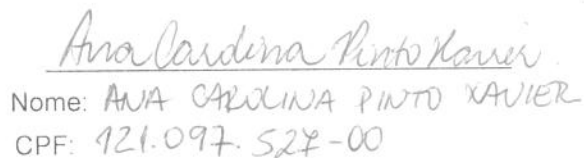 Ana Carolina Pinto Xavier
Nome: ANA CAROLINA PINTO XAVIER
CPF: 121.097.527-00